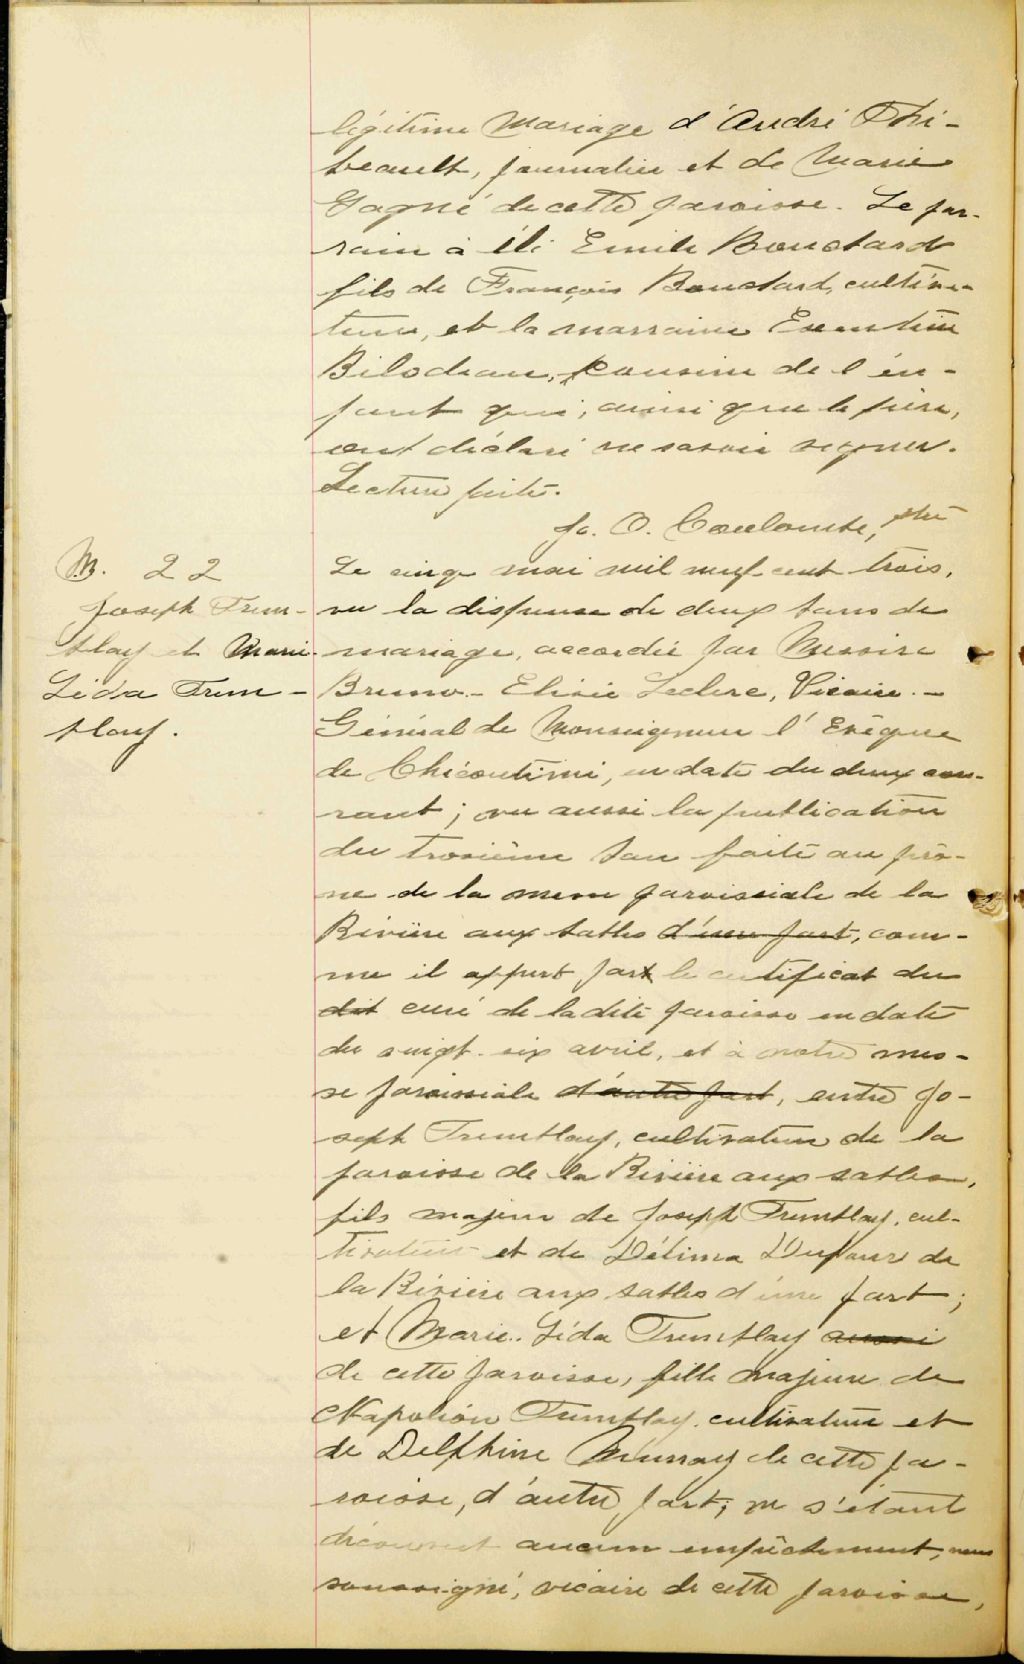 légitime Mariage d'André Thi-
beault, journalier et de Marie
Gagné de cette paroisse. Le par-
rain a été Emile Bouchard
fils de François Bouchard, cultiva-
teur, et la marraine
Bilodeau, cousine de l'en-
fant qui, ainsi que le père,
ont déclaré ne savoir signer.
Lecture faite.
Js. O. Coulombe, ptre
M. 22
Joseph Trem-
blay et Marie
Lida Trem-
blay.
Le cinq mai mil neuf cent trois,
vu la dispense de deux bans de
mariage, accordée par Messire
Bruno-Elisée Leclerc, Vicaire-
Général de Monseigneur l'Evêque
de Chicoutimi, en date du deux cou-
rant; vu aussi la publication
du troisième ban faite au prô-
ne de la messe paroissiale de la
Rivière aux Sables d'une part, com-
me il appert par le certificat du
dit curé de la dite paroisse en date
du vingt-six avril, et à notre mes-
se paroissiale d'autre part, entre Jo-
seph Tremblay, cultivateur de la
paroisse de la Rivière aux Sables,
fils majeur de Joseph Tremblay, cul-
tivateur et de Délima Dufour de
la Rivière aux Sables d'une part;
et Marie-Lida Tremblay aussi
de cette paroisse, fille majeure de
Napoléon Tremblay, cultivateur et
de Delphine Murray de cette pa-
roisse, d'autre part; ne s'étant
découvert aucun empêchement, nous
soussigné, vicaire de cette paroisse,